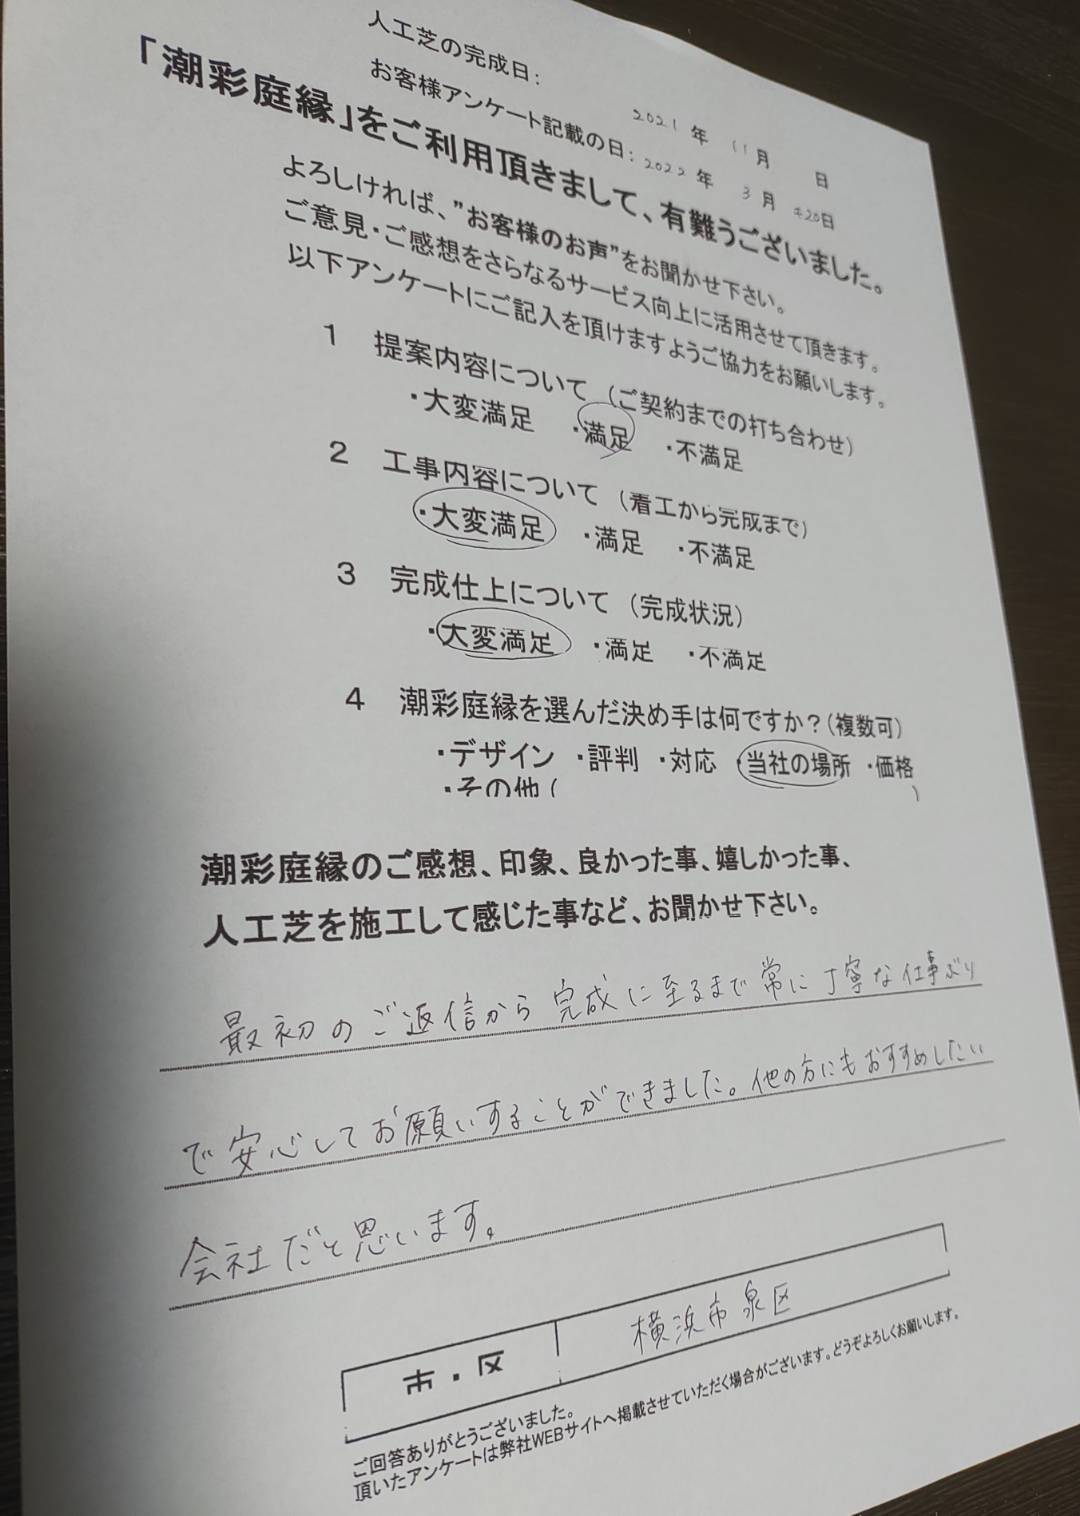 人工芝の完成日: 2021年 11月 日
お客様アンケート記載の日: 2022年 3月 20日
「潮彩庭縁」をご利用頂きまして、有難うございました。
よろしければ、”お客様のお声”をお聞かせ下さい。
ご意見・ご感想をさらなるサービス向上に活用させて頂きます。
以下アンケートにご記入を頂けますようご協力をお願いします。
1 提案内容について (ご契約までの打ち合わせ)
・大変満足 ・満足 ・不満足
2 工事内容について (着工から完成まで)
・大変満足 ・満足 ・不満足
3 完成仕上について (完成状況)
・大変満足 ・満足 ・不満足
4 潮彩庭縁を選んだ決め手は何ですか?(複数可)
・デザイン ・評判 ・対応 ・当社の場所 ・価格
・その他( )
潮彩庭縁のご感想、印象、良かった事、嬉しかった事、
人工芝を施工して感じた事など、お聞かせ下さい。
最初のご返信から完成に至るまで常に丁寧な仕事ぶり
で安心してお願いすることができました。他の方にもおすすめしたい
会社だと思います。
市・区 横浜市泉区
ご回答ありがとうございました。
頂いたアンケートは弊社WEBサイトへ掲載させていただく場合がございます。どうぞよろしくお願いします。